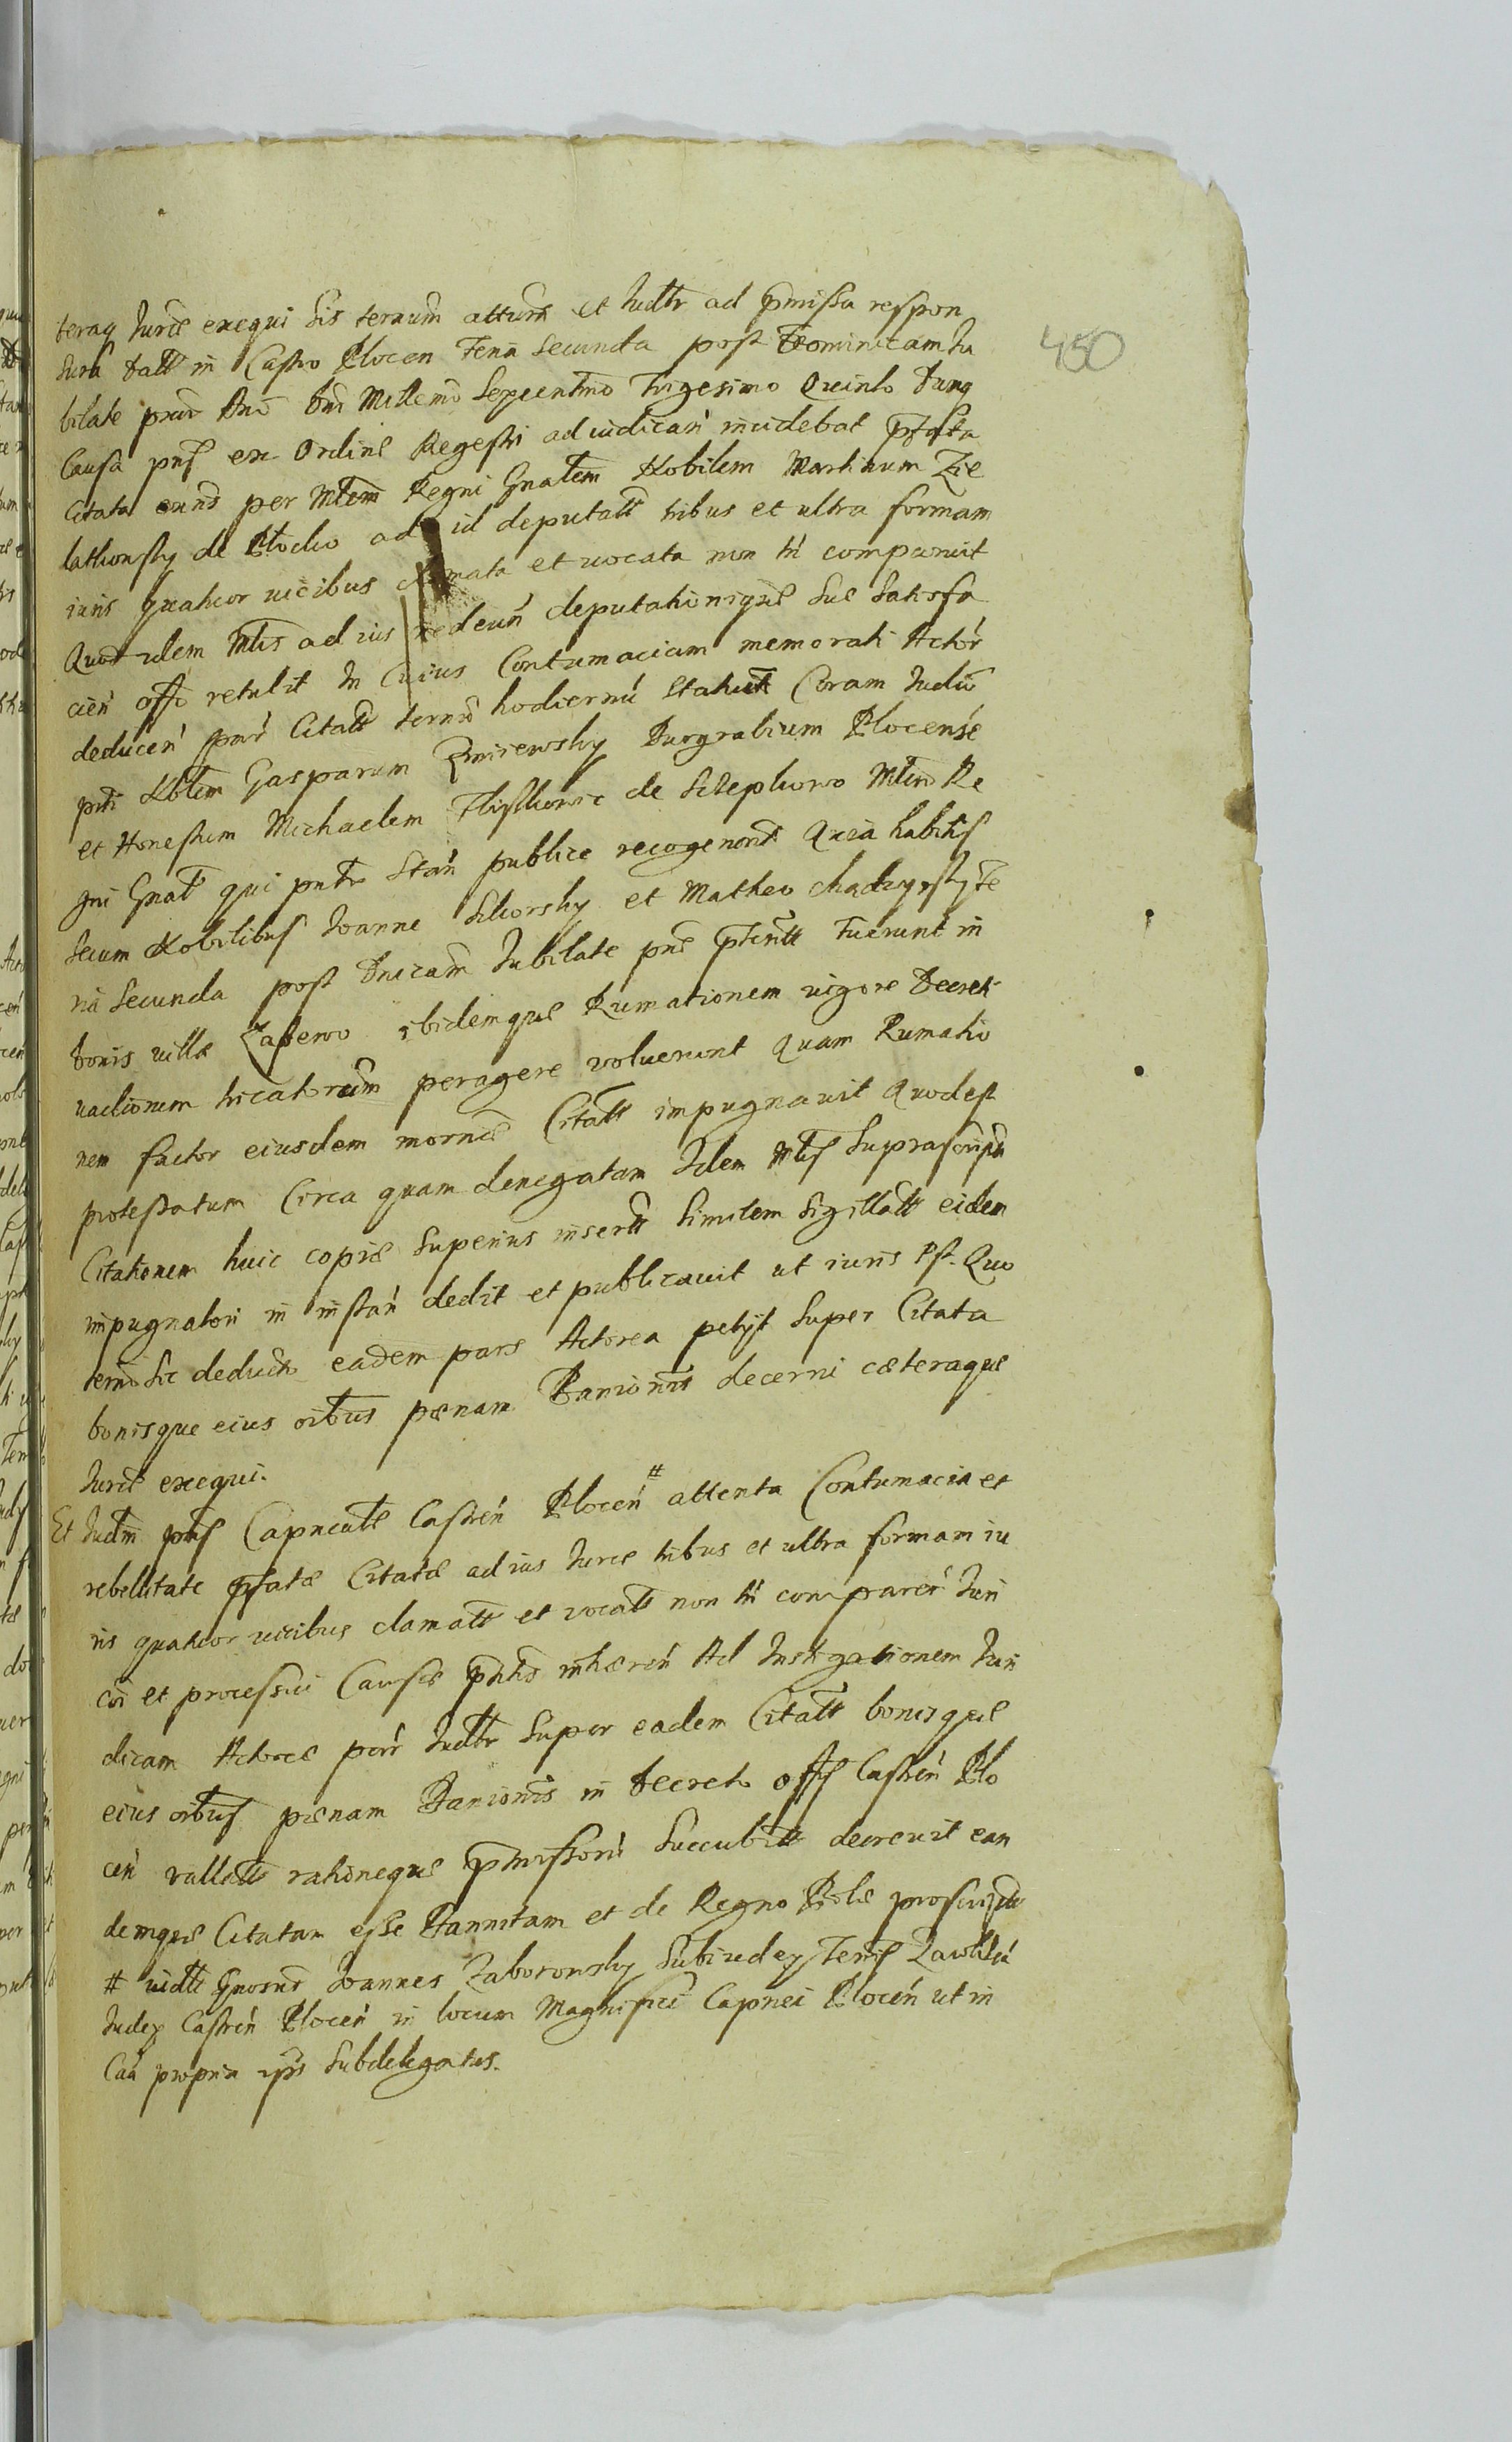 teraq Juris exequi sis ternum atturus et Judtr ad pmissa respon
sura Datt in Castro Plocen Feria Secunda post Dominicam Ju
bilate prox Ano Dni Millemo Sepcentmo Trigesimo Quinto Dumq
Causa pns ex Ordine Regestri adiudicari incidebat pfata
Citata eund per Mlem Regni Gnalem Nobilem Martinum Zie
de Plocko ad id deputatt tribus et ultra formam
iuris quatuor vicibus clamata et vocata non tn comparuit
Quod idem Mlis ad ius redeun deputationique sue satisfa
cien offo retulit In Cuius Contumaciam memorati Actor
deducen parr Citatt termo hodiernu Statuit Coram Judio
pnti Nblem Gasparum Zmiiewsky Burgrabium Plocense
et Honestum Michaelem de Mlem Re
gni Gnal qui pntr Stan publice recogenont Quia habitis
secum Nobilibus Joanne Sikorsky et Matheo Fe
ria Secunda post Dnicam Jubilate pns pteritt Fuerunt in
bonis villae ibidemque Rumationem vigore Decreti
peragere voluerunt Quam Rumatio
nem factor eiusdem Citatt impugnavit Quod est
protestatum Circa quam denegatam Idem Mlis Suprascripta
Citationem huic copiae Superius insertt Similem Sigillatt eidem
impugnatori in instan dedit et publicavit ut iuris est. Quo
termo Sic deducto eadem pars Actorea petijt Super Citata
bonisque eius oibus paenam Banionis decerni caeteraque
Juris exequi.
Et Judm pns Capneale Castren Plocen # attenta Contumacia et
rebellitate pfatae Citatae ad ius Juris tribus et ultra formam iu
ris quatuor vicibus clamatt et vocatt non tn comparen Juri
coi et processui Causae pntis inhaeren Ad Instigationem Juri
dicam Actoreae parr Judtr Super eadem Citatt bonisque
eius oibus paenam Banionis in Decreto Offs Castren Plo
cen vallatt rationeque pmissoru Succubitt decrevit ean
demque Citatam esse Bannitam et de Regno Polae proscripta
# vidtt Gnosus Joannes Zaborowsky Subiudex Terris
Judex Castren Plocen in locum Magnifici Capnei Plocen ut in
Caa propria ipsi Subdelegatus.
450